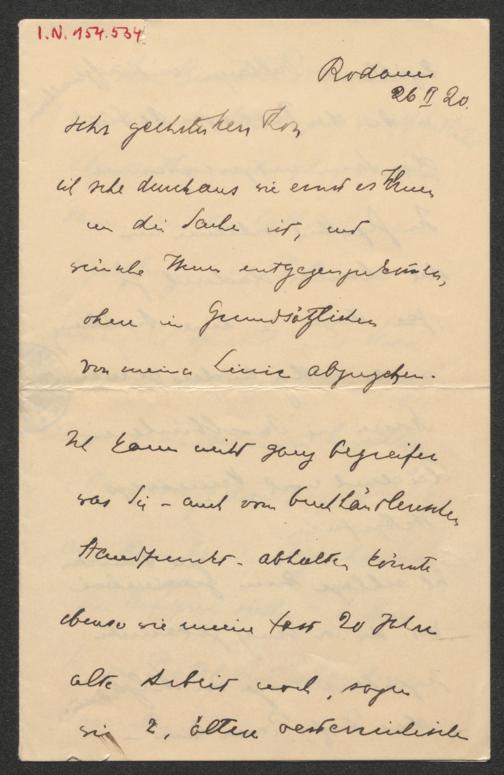 I.N. 154.534
Rodaun
26 II 20.
sehr geehrter Herr
ich sehe durchaus wie ernst es Ihnen
um die Sache ist, und
wünsche Ihnen entgegenzukommen,
ohne im Grundsätzlichen
von meiner Linie abzugehen.
Ich kann nicht ganz begreifen
was Sie – auch vom buchhändlerischen
Standpunkt – abhalten könnte
ebenso wie meine fast 20 Jahre
alte Arbeit noch, sagen
wir 2, ältere oesterreichische